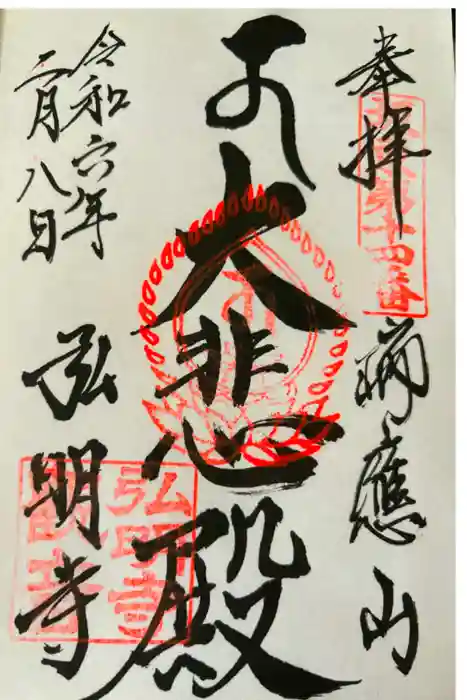 奉拝
瑞應山
大悲殿
弘明寺
令和六年
二月八日
坂東第十四番
弘明寺